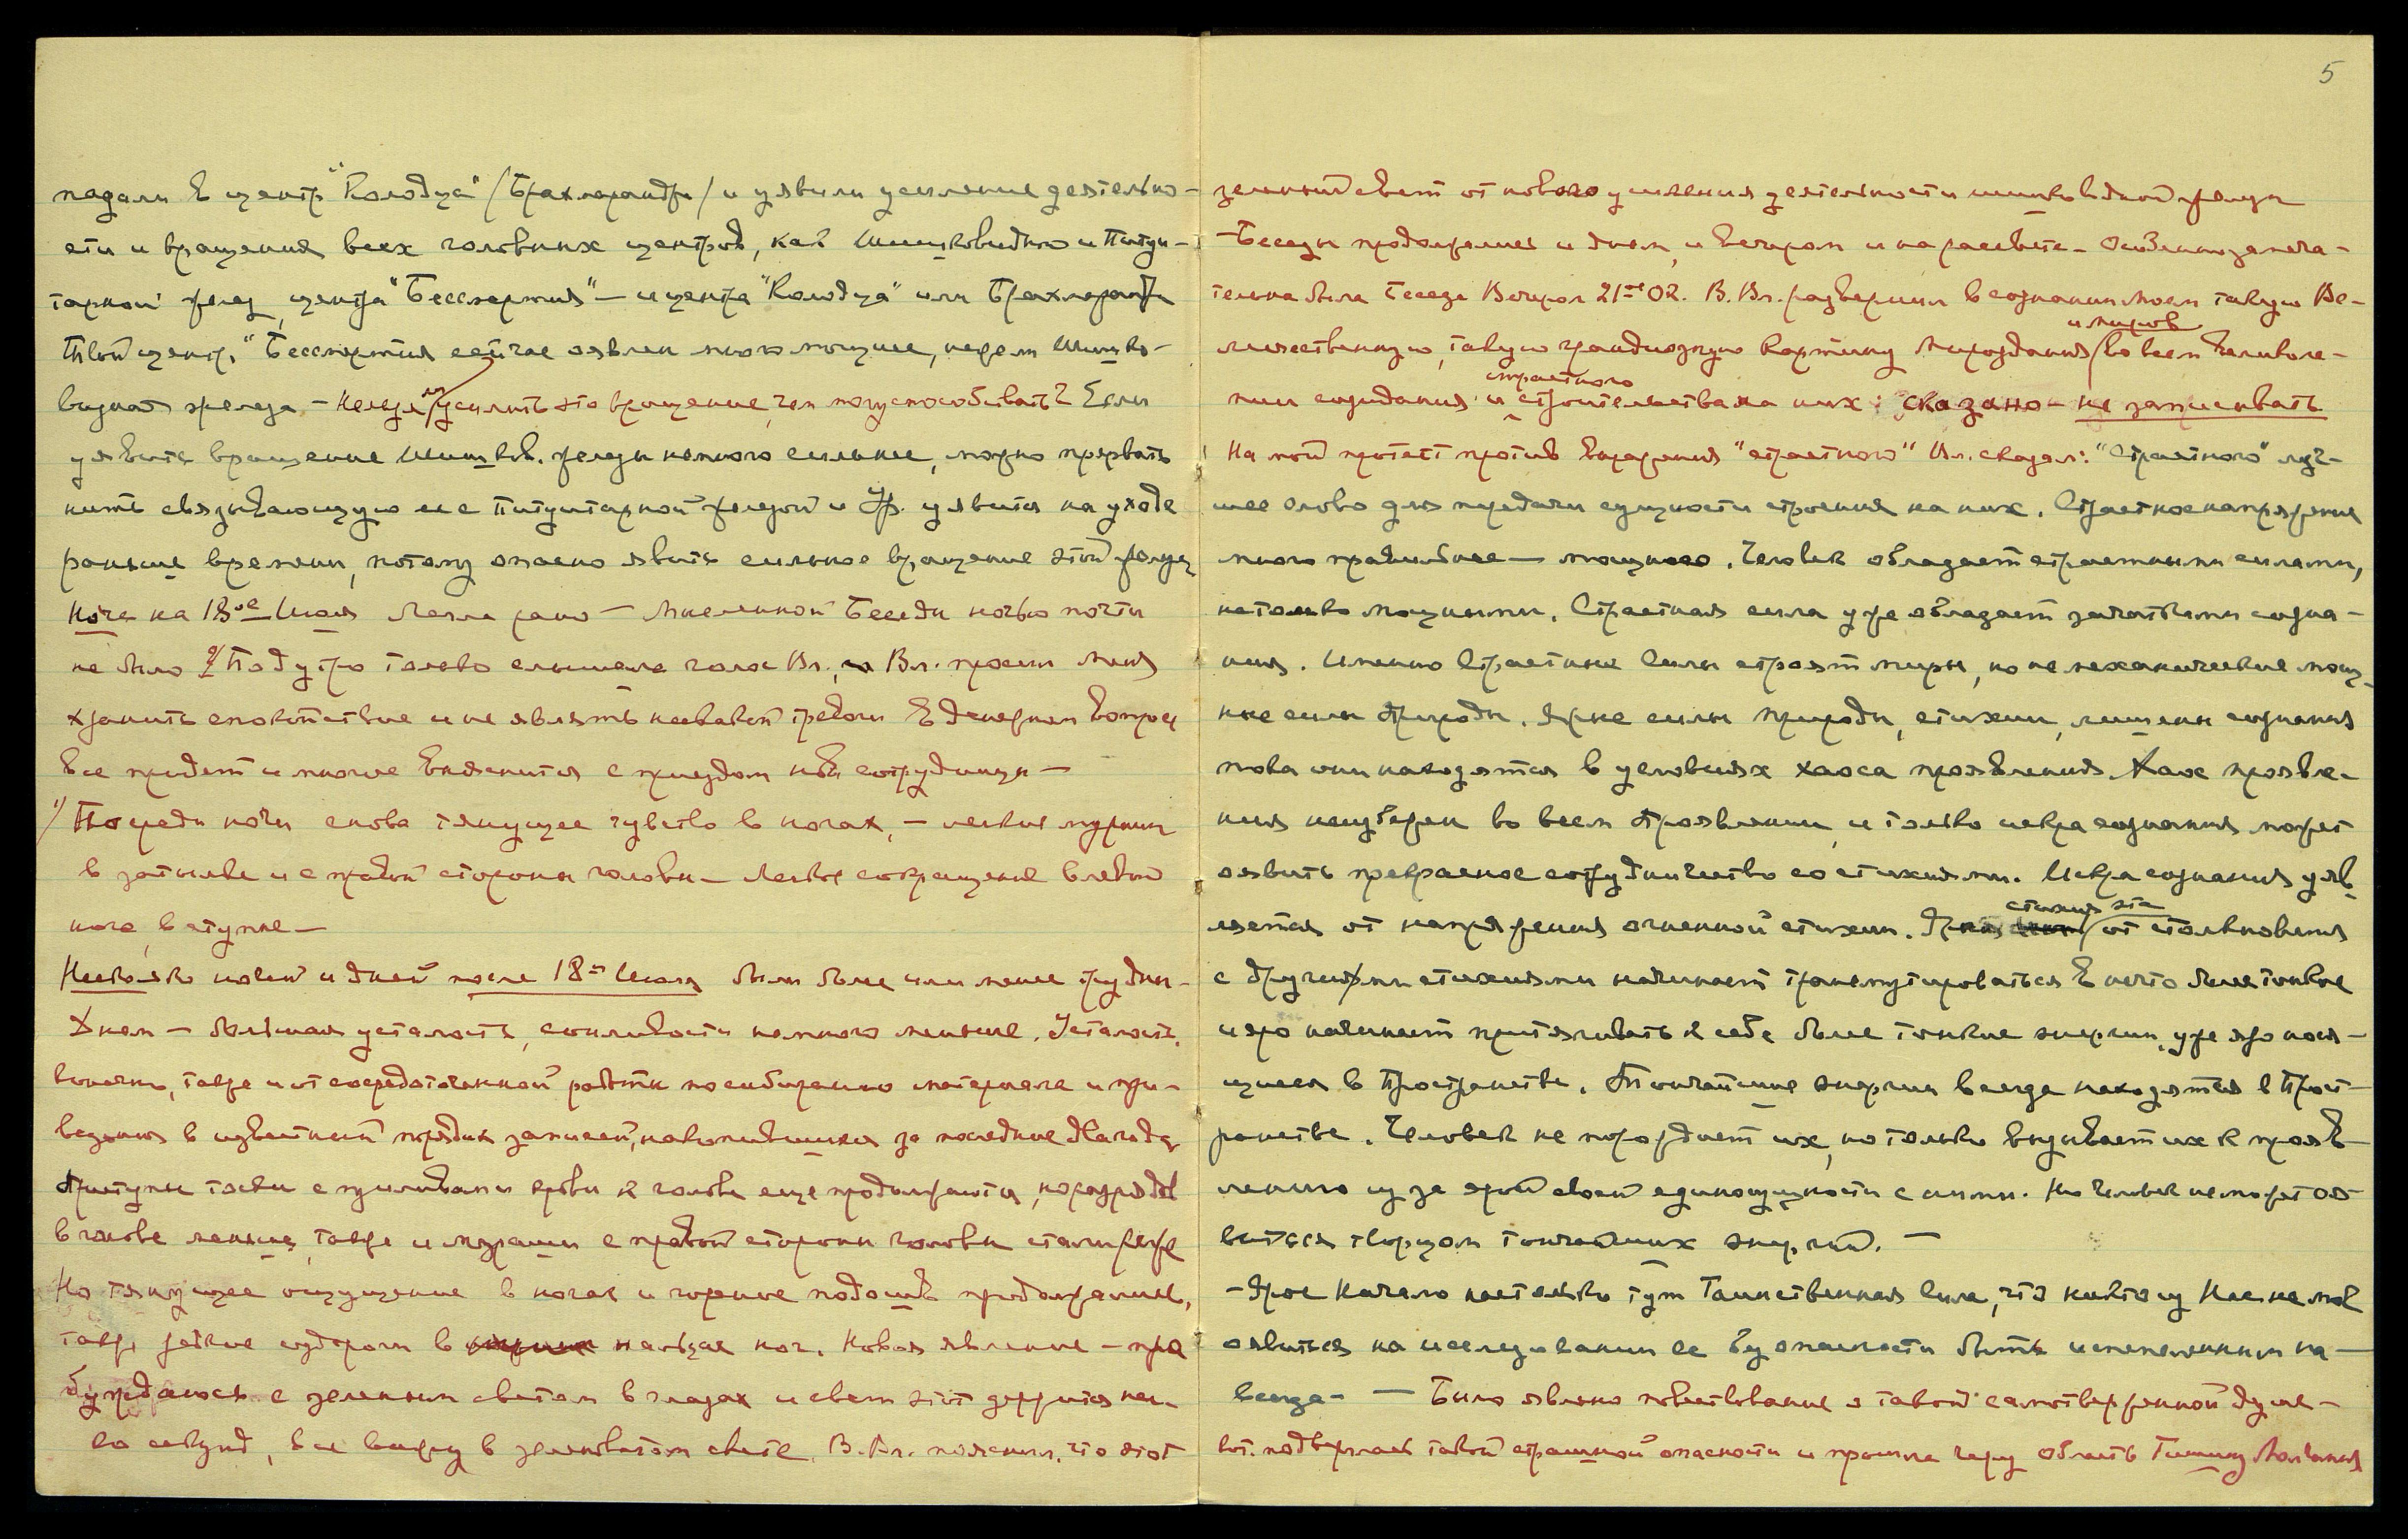 5
падали в центр "Колодца" /Брахмарандры/ и уявили усиление деятельно-
сти и вращения всех головных центров, как Шишковидной и Питуи-
тарной желез, центра "Бессмертия" — и центра "Колодца" или Брахмарандры
центр. "Бессмертия сейчас оявлен много мощнее, нежели Шишко-
видная железа. — Нельзя ли усилить это вращение, чем могу способствовать? Если
уявить вращение Шишков. железы немного сильнее, можно прервать
нить связывающую ее с Питуитарной железой и Ур. уявится на уходе
раньше времени, потому опасно явить сильное вращение этой железы
Ночь на 18ое Июля Легла рано — Мысленной Беседы ночью почти
не было 2/ Под утро только слышала голос Вл., Вл. просил меня
хранить спокойствие и не являть никакой тревоги в денежном вопросе
Все придет и многое выяснится с приездом нов сотрудницы —
1/ Посреди ночи снова тянущее чувство в ногах, — легкие мурашки
в затылке и с правой стороны головы — Легкое сокращение в левой
ноге, в ступне —
Несколько ночей и дней после 18го Июля были более или менее трудны.
Днем — большая усталость, сонливости немного меньше. Усталость,
конечно, также и от сосредоточенной работы по собиранию материала и при-
ведения в известный порядок записей, накопившихся за последние два года
Приступы тоски с приливами крови к голове еще продолжаются, но
в голове меньше, также и мурашки с правой стороны головы стали реже
Но тянущее ощущение в ногах и горение подошв продолжались,
также резкие судороги в пальцах ног. Новое явление — про
буждаюсь с зеленым светом в глазах и свет этот держится нес-
ко секунд, все вижу в зеленоватом свете. В. Вл. пояснил, что этот
зеленый свет от нового усиления деятельности шишковидной железы
— Беседы продолжались и днем, и вечером и на рассвете — Особенно замеча-
тельна была Беседа Вечером 21го 02. В. Вл. развернул в сознании моем такую Ве-
личественную, такую грандиозную картину Мироздания и миров во всем великоле-
пии созидания и страстного строительства на них: сказано — не записывать
На мой протест против выражения "страстного" Вл. сказал: "Страстного" луч-
шее слово для передачи сущности строения на них. Страстное напряжение
много правильнее — мощного. Человек обладает страстными силами,
не только мощными. Страстная сила уже обладает зачатками созна-
ния. Именно Страстные Силы строят миры, но не механические мощ-
ные силы Природы. Ярые силы природы, стихии, лишены сознания
пока они находятся в условиях хаоса проявления. Хаос проявле-
ния неизбежен во всем Проявлении, и только искра сознания может
оявить прекрасное сотрудничество со стихиями. Искра сознания уяв-
ляется от напряжения огненной стихии. Ярая стихия эта от столкновения
с другими стихиями начинает трансмутироваться в нечто более тонкое
и яро начинает притягивать к себе более тонкие энергии, уже яро нося-
щиеся в Пространстве. Тончайшие энергии всегда находятся в Прост-
ранстве. Человек не порождает их, но только вызывает их к прояв-
лению из за ярой своей единосущности с ними. Но Человек не может оя-
виться творцом тончайших энергий. —
— Ярое Начало настолько тут Таинственная Сила, что никто из Нас не мог
оявиться на исследовании ее без опасности быть испепеленным на-
всегда — — Было явлено повествование о такой самоотверженной душе —
кот. подверглась такой страшной опасности и прошла через область Тишины Молчания